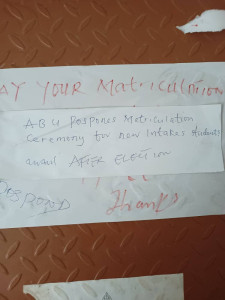 AY YOUR Matriculation
A.B.U Pospones Matriculation
Ceremony for new Intakes Students
until AFTER ELECTION
Thanks